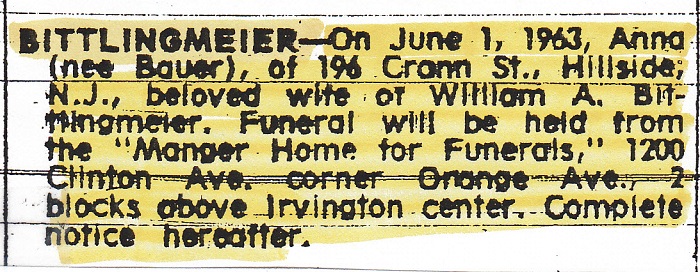 BITTLINGMEIER—On June 1, 1963, Anna
(nee Bauer), of 196 Crann St., Hillside,
N.J., beloved wife of William A. Bit-
tlingmeier. Funeral will be held from
the "Manger Home for Funerals," 1200
Clinton Ave. corner Orange Ave., 2
blocks above Irvington center. Complete
notice hereafter.